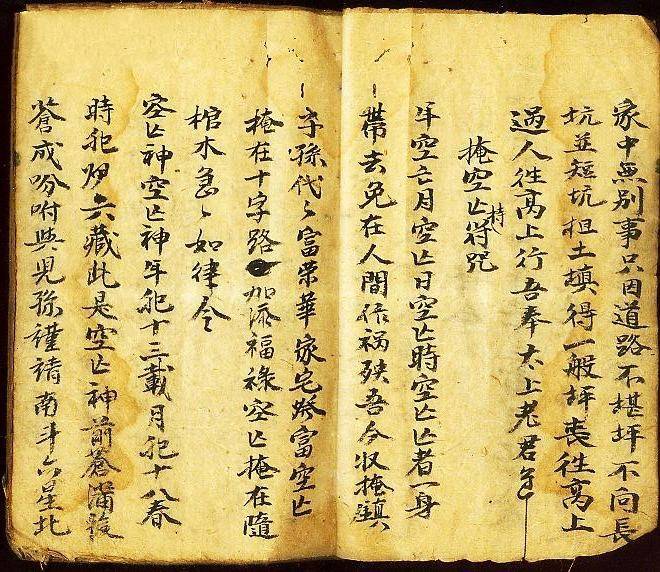 家中無別事只因道路不堪坪不向長
坑並短坑担土填得一般坪喪往高上
過人往高上行吾奉太上老君
掩空亡符咒
持
年空亡月空亡日空亡時空亡亡者一身
帶去免在人間作禍殃吾今収掩鎮
子孫代〻富榮華家宅發富空亡
掩在十字路加添福祿空亡掩在隨
棺木急〻如律令
空亡神空亡神年犯十三載月犯十八春
時犯六藏此是空亡神前蒼滿後
蒼成吩咐與兒孫謹請南斗六星北